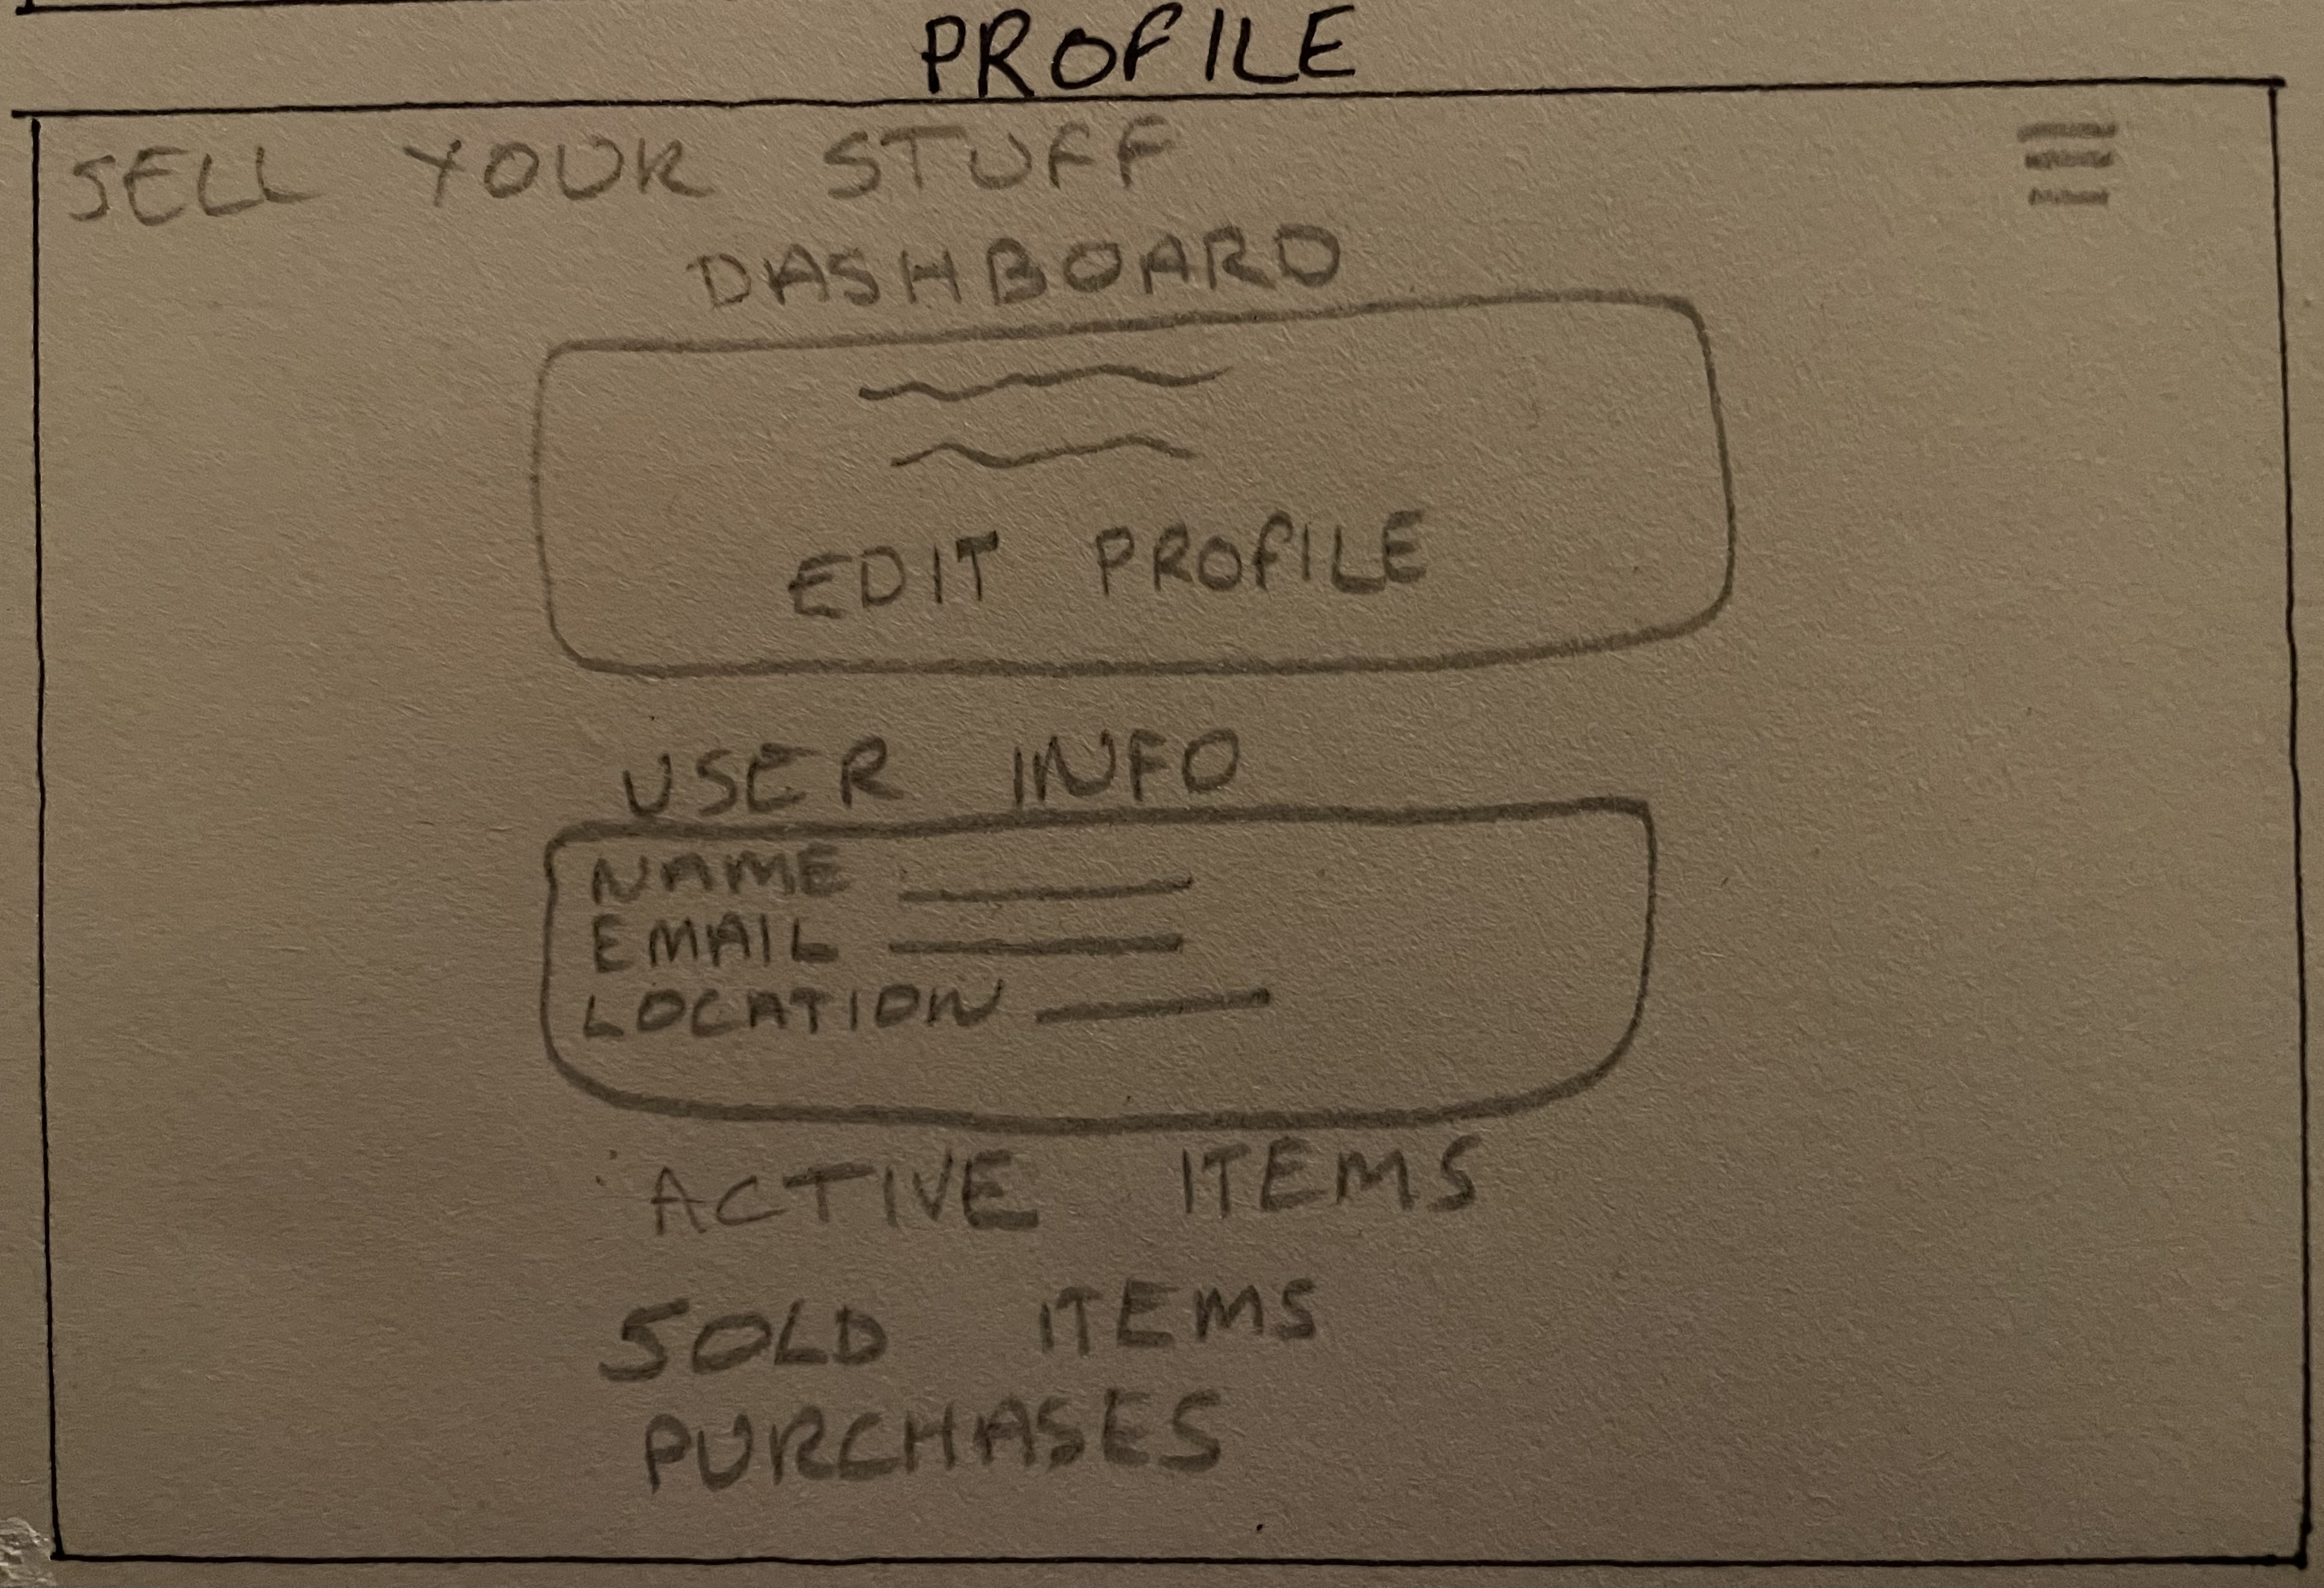 PROFILE
SELL YOUR STUFF
DASHBOARD
EDIT PROFILE
USER INFO
NAME
EMAIL
LOCATION
ACTIVE ITEMS
SOLD ITEMS
PURCHASES